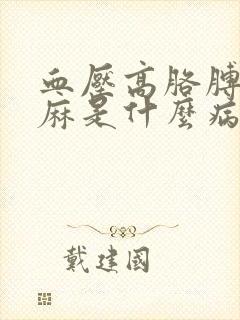 血壓高胳膊
麻是什麼病
戴建國